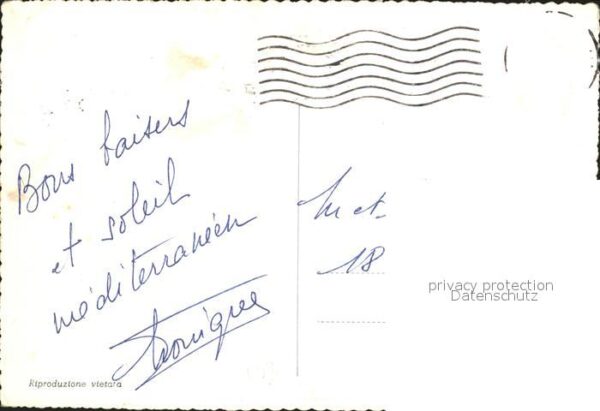 Bons baisers
et soleil
méditerranéen
Monique
M et
18
privacy protection
Datenschutz
Riproduzione vietata